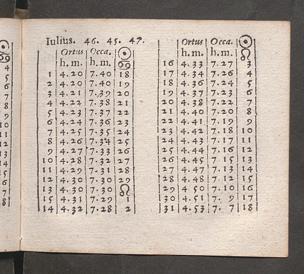 Iulius. 46. 45. 47.
Ortus Occa. ☉
h. m. h. m. ♋
1 4.20 7.40 18
2 4.20 7.40 19
3 4.21 7.39 20
4 4.22 7.38 21
5 4.23 7.37 22
6 4.24 7.36 23
7 4.25 7.35 24
8 4.26 7.34 25
9 4.27 7.33 26
10 4.28 7.32 27
11 4.29 7.31 28
12 4.30 7.30 29
13 4.30 7.30 ♌
14 4.31 7.29 1
15 4.32 7.28 2
Ortus Occa. ☉
h. m. h. m. ♌
16 4.33 7.27 3
17 4.34 7.26 4
18 4.36 7.24 5
19 4.37 7.23 6
20 4.38 7.22 7
21 4.40 7.20 8
22 4.41 7.19 9
23 4.42 7.18 10
24 4.43 7.17 11
25 4.44 7.16 12
26 4.45 7.15 13
27 4.47 7.13 14
28 4.48 7.12 15
29 4.50 7.10 16
30 4.51 7. 9 17
31 4.53 7. 7 18